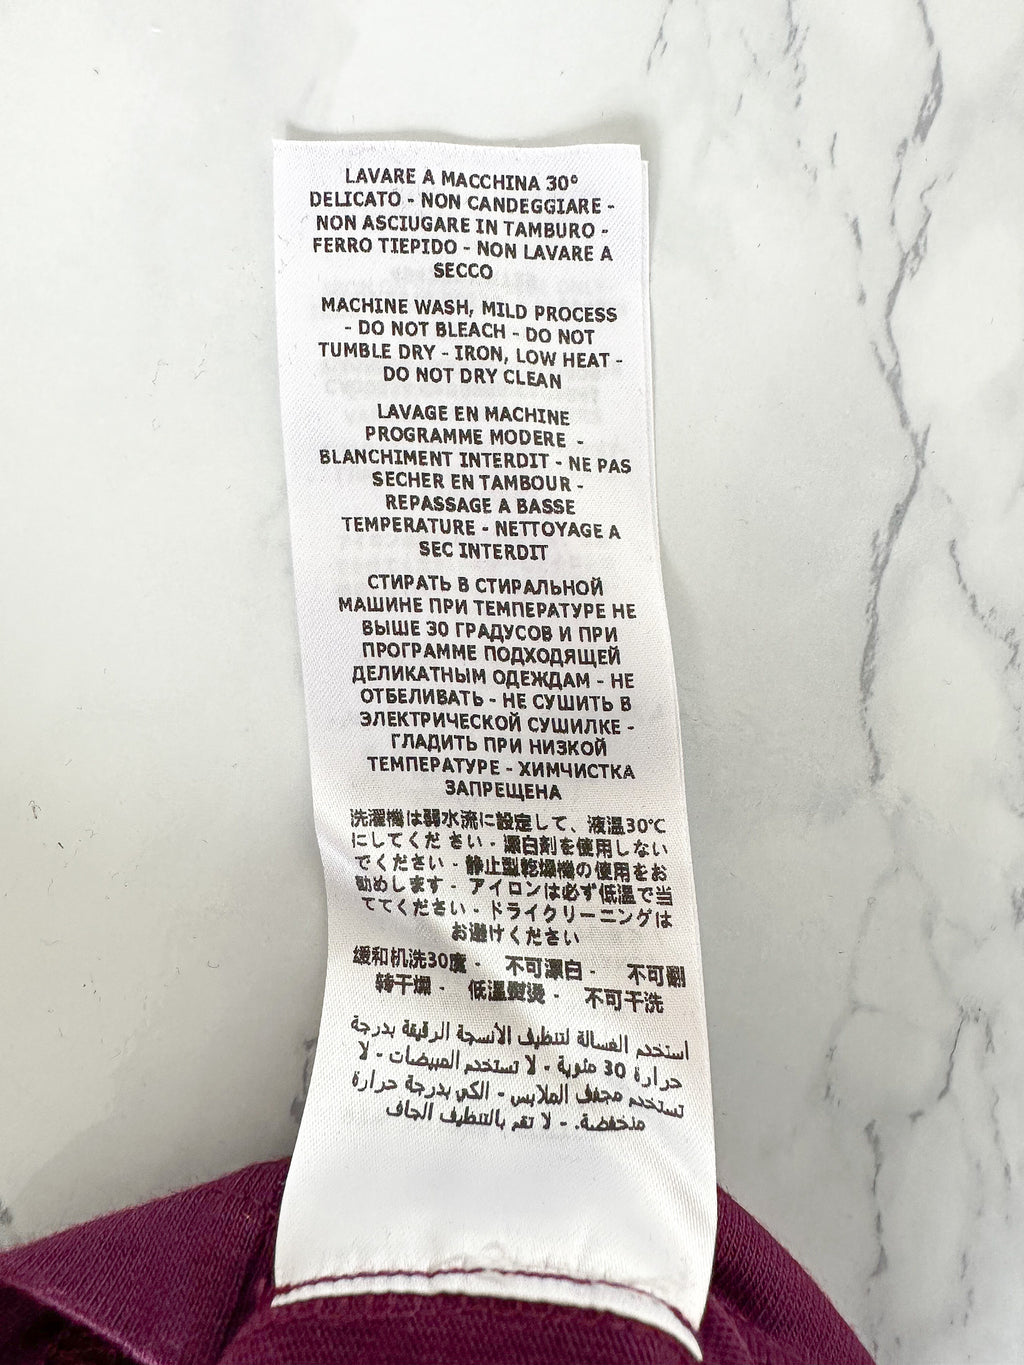 LAVARE A MACCHINA 30°
DELICATO - NON CANDEGGIARE -
NON ASCIUGARE IN TAMBURO -
FERRO TIEPIDO - NON LAVARE A
SECCO
MACHINE WASH, MILD PROCESS
- DO NOT BLEACH - DO NOT
TUMBLE DRY - IRON, LOW HEAT -
DO NOT DRY CLEAN
LAVAGE EN MACHINE
PROGRAMME MODERE -
BLANCHIMENT INTERDIT - NE PAS
SECHER EN TAMBOUR -
REPASSAGE A BASSE
TEMPERATURE - NETTOYAGE A
SEC INTERDIT
СТИРАТЬ В СТИРАЛЬНОЙ
МАШИНЕ ПРИ ТЕМПЕРАТУРЕ НЕ
ВЫШЕ 30 ГРАДУСОВ И ПРИ
ПРОГРАММЕ ПОДХОДЯЩЕЙ
ДЕЛИКАТНЫМ ОДЕЖДАМ - НЕ
ОТБЕЛИВАТЬ - НЕ СУШИТЬ В
ЭЛЕКТРИЧЕСКОЙ СУШИЛКЕ -
ГЛАДИТЬ ПРИ НИЗКОЙ
ТЕМПЕРАТУРЕ - ХИМЧИСТКА
ЗАПРЕЩЕНА
洗濯機は弱水流に設定して、液温30℃
にしてくだ さい - 漂白剤を使用しない
でください - 静止型乾燥機の使用をお
勧めします - アイロンは必ず低温で当
ててください - ドライクリーニングは
お避けください
缓和机洗30度 - 不可漂白 - 不可翻
转干燥 - 低温熨烫 - 不可干洗
استخدم الغسالة لتنظيف الأنسجة الرقيقة بدرجة
حرارة 30 مئوية - لا تستخدم المبيضات - لا
تستخدم مجفف الملابس - الكي بدرجة حرارة
منخفضة. - لا تقم بالتنظيف الجاف